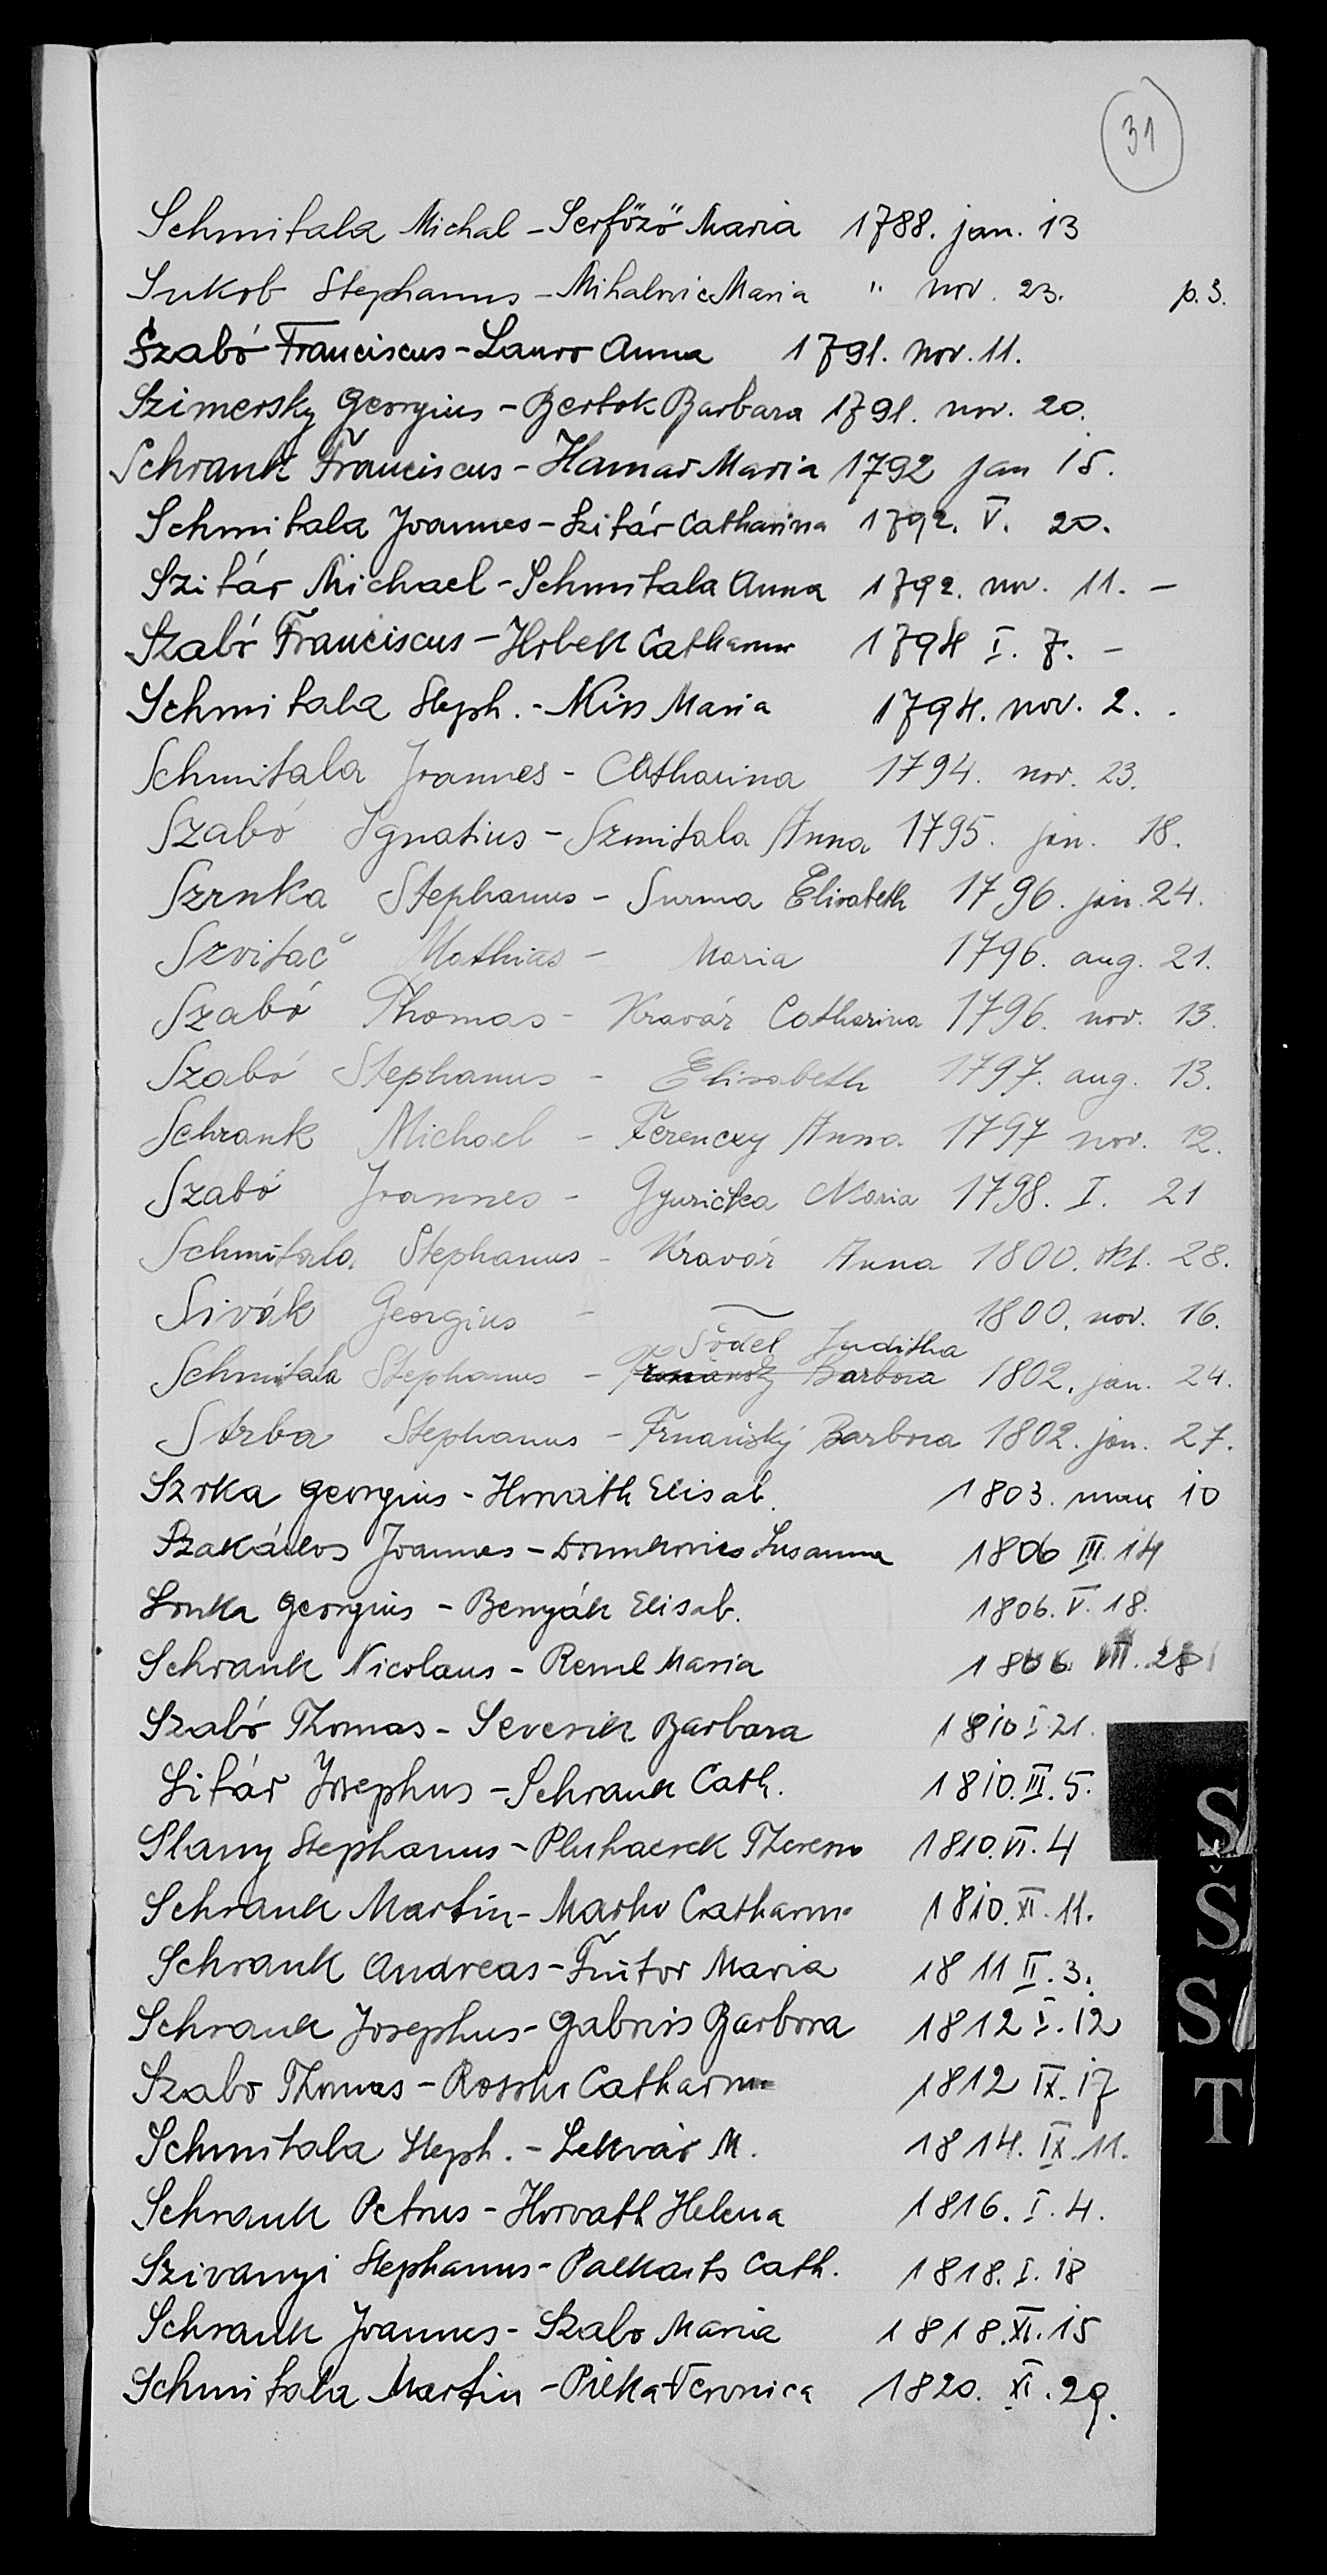 31
Schmitala Michal - Serfőző Maria 1788. jan. 13
Sukob Stephanus - Mihalovic Maria " nov. 23. p. 3.
Szabó Franciscus - Lauro Anna 1791. nov. 11.
Szimersky Georgius - Bertok Barbara 1791. nov. 20.
Schrank Franciscus - Hamar Maria 1792 jan 15.
Schmitala Joannes - Szitár Catharina 1792. V. 20.
Szitár Michael - Schmitala Anna 1792. nov. 11. -
Szabó Franciscus - Hrbek Catharina 1794 I. 7. -
Schmitala Steph. - Kiss Maria 1794. nov. 2. .
Schmitala Joannes - Catharina 1794. nov. 23.
Szabó Ignatius - Szmitala Anna 1795. jan. 18.
Szrnka Stephanus - Surma Elisabeth 1796. jan. 24.
Szvitač Mathias - Maria 1796. aug. 21.
Szabó Thomas - Kravár Catharina 1796. nov. 13.
Szabó Stephanus - Elisabeth 1797. aug. 13.
Schrank Michael - Ferenczy Anna 1797 nov. 12.
Szabó Joannes - Gyurička Maria 1798. I. 21
Schmitala Stephanus - Kravár Anna 1800. okt. 28.
Sivák Georgius - 1800. nov. 16.
Södel Juditha
Schmitala Stephanus - Barbora 1802. jan. 24.
Strba Stephanus - Trnavský Barbora 1802. jan. 27.
Szrka Georgius - Horváth Elisab. 1803. 10
Szakállos Joannes - Susanna 1806 III. 14
Georgius - Benyák Elisab. 1806. V. 18.
Schrank Nicolaus - Reml Maria 1806. VII. 28
Szabó Thomas - Severin Barbara 1810 I. 21.
Sitár Josephus - Schrank Cath. 1810. III. 5.
Slany Stephanus - Pluhacsek Theresa 1810. VI. 4
Schrank Martin - Marko Catharina 1810. XI. 11.
Schrank Andreas - Maria 1811 II. 3.
Schrank Josephus - Gabris Barbora 1812 I. 12
Szabo Thomas - Catharina 1812 IX. 17
Schmitala Steph. - Lekvár M. 1814. IX. 11.
Schrank Petrus - Horvath Helena 1816. I. 4.
Szivanyi Stephanus - Palkaits Cath. 1818. I. 18
Schrank Joannes - Szabo Maria 1818. XI. 15
Schmitala Martin - Pilka Veronica 1820. XI. 29.
S
Š
S
T